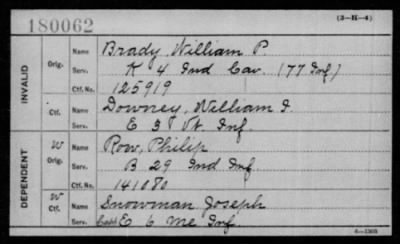 180062
(3—H—4)
INVALID
Orig.
Name Brady, William P
Serv. K 4 Ind Cav. (77 Inf)
Ctf. No. 125919
Ctf.
Name Downey, William I.
Serv. E 3 Vt. Inf.
DEPENDENT
W
Orig.
Name Row, Philip
Serv. B 29 Ind Inf
Ctf. No. 141080
W
Ctf.
Name Snowman Joseph
Serv. E 6 Me Inf.